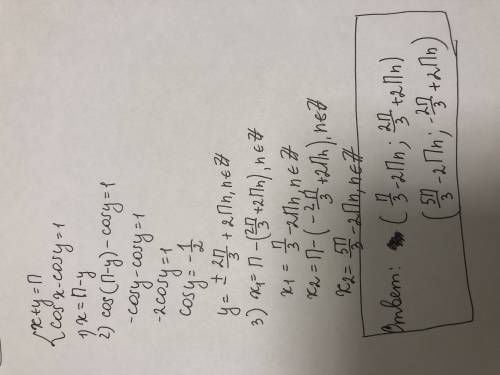 { x+y=П
cosx-cosy=1
1) x=П-y
2) cos(П-y)-cosy=1
-cosy-cosy=1
-2cosy=1
cosy=-1/2
y=± 2П/3 +2Пn, n∈Z
3) x₁=П-(2П/3+2Пn), n∈Z
x₁=П/3-2Пn, n∈Z
x₂=П-(-2П/3+2Пn), n∈Z
x₂=5П/3-2Пn, n∈Z
Ответ: (П/3-2Пn; 2П/3+2Пn)
(5П/3-2Пn; -2П/3+2Пn)